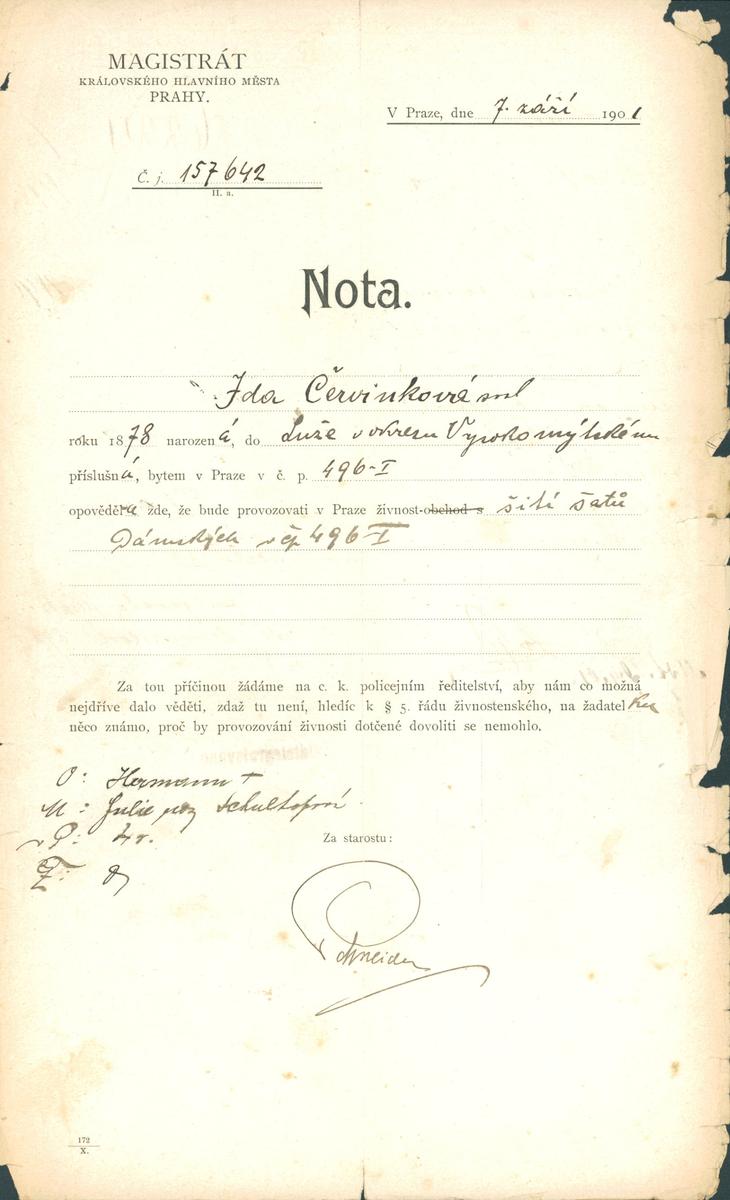 MAGISTRÁT
KRÁLOVSKÉHO HLAVNÍHO MĚSTA
PRAHY.
V Praze, dne 7. září 1901
Č. j. 157642
II. a.
Nota.
Ida Červinková
roku 1878 narozená, do Luže v okresu Vysokomýtském
příslušná, bytem v Praze v č. p. 496-I
opověděla zde, že bude provozovati v Praze živnost-obchod s šití šatů
Dámských v čp 496-I
Za tou příčinou žádáme na c. k. policejním ředitelství, aby nám co možná
nejdříve dalo věděti, zdaž tu není, hledíc k § 5. řádu živnostenského, na žadatelku
něco známo, proč by provozování živnosti dotčené dovoliti se nemohlo.
O: Hermann +
M: Julie roz
v P: 4 r.
Z:
Za starostu:
Schneider
172
X.